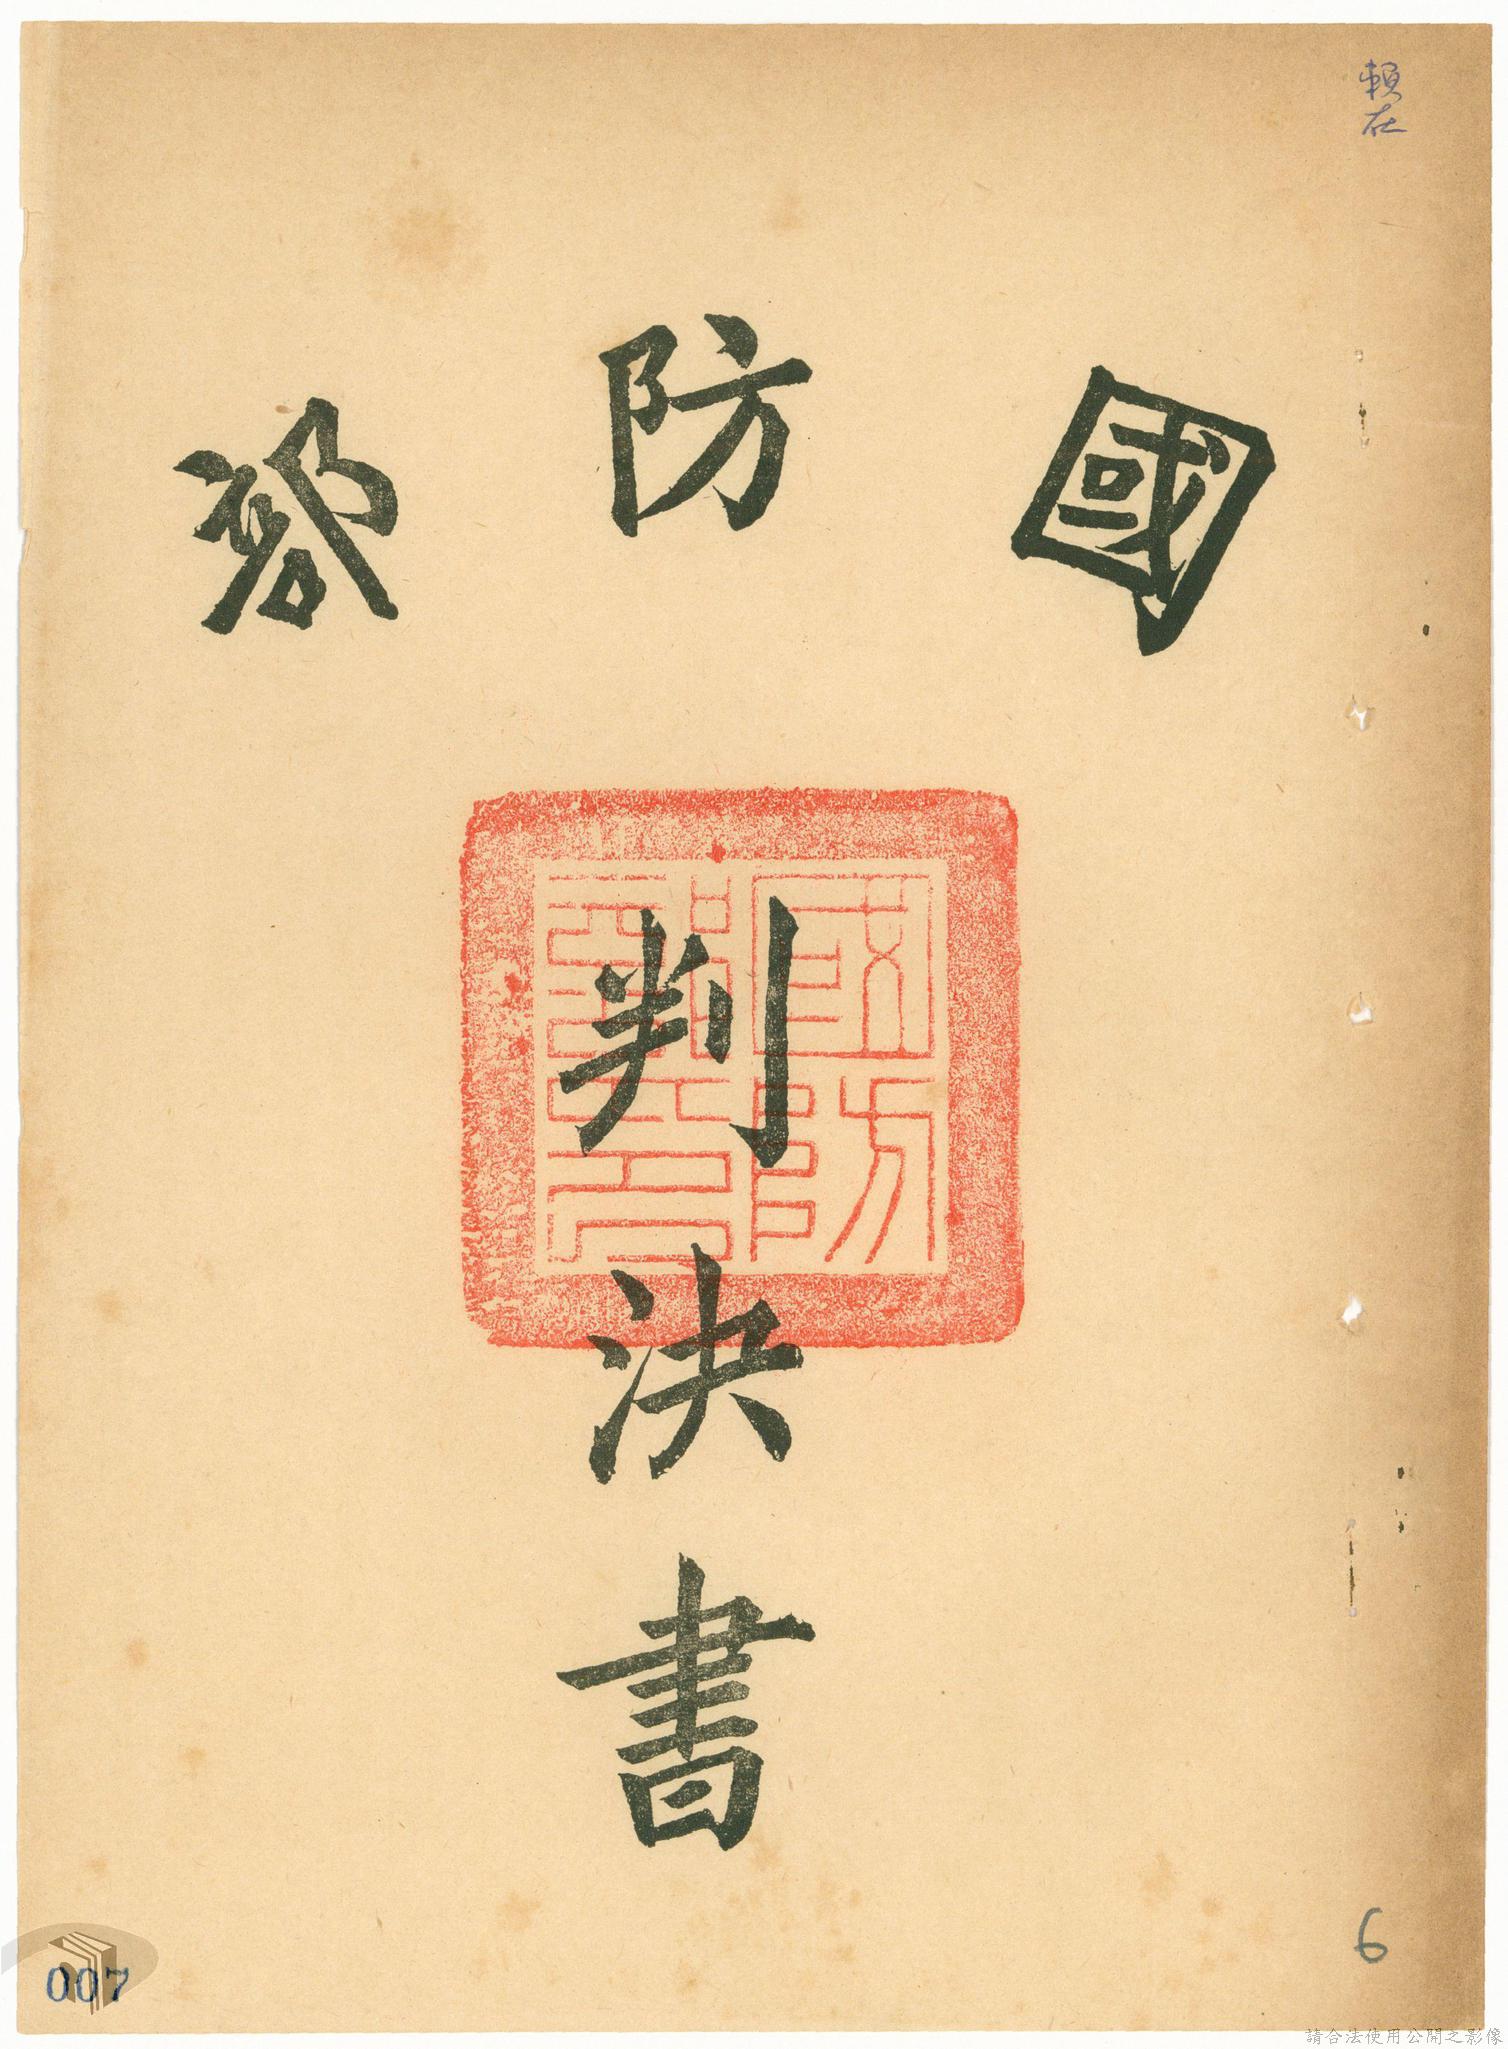 賴在
國防部
國防部印
判決書
6
007
請合法使用公開之影像